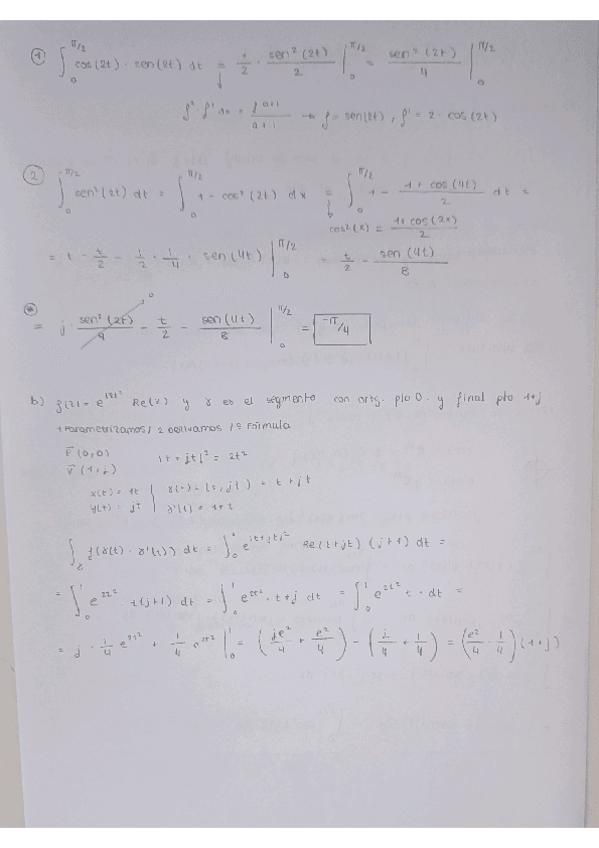 ① ∫₀^{π/2} cos(2t) · sen(2t) dt = 1/2 · sen²(2t)/2 |₀^{π/2} = sen²(2t)/4 |₀^{π/2}
f^a · f' dx = f^{a+1}/(a+1) → f = sen(2t), f' = 2 · cos(2t)
② ∫₀^{π/2} sen²(2t) dt = ∫₀^{π/2} 1 - cos²(2t) dx = ∫₀^{π/2} 1 - (1 + cos(4t))/2 dt =
cos²(x) = (1 + cos(2x))/2
= t - t/2 - 1/2 · 1/4 · sen(4t) |₀^{π/2} = t/2 - sen(4t)/8
= j · sen²(2t)/4 - t/2 - sen(4t)/8 |₀^{π/2} = -π/4
b) f(z) = e^{|z|²} Re(z) y γ es el segmento con orig. pto 0. y final pto 1+j
1 Parametrizamos / 2 Derivamos / Fórmula
(0,0) |t + jt|² = 2t²
(1,j)
x(t) = 1t
y(t) = jt
γ(t) = (t, jt) = t + jt
γ'(t) =
∫ f(γ(t) · γ'(t)) dt = ∫₀¹ e^{|t+jt|²} Re(t+jt) (j+1) dt =
= ∫₀¹ e^{2t²} · t(j+1) dt = ∫₀¹ e^{2t²} · t + j dt = ∫₀¹ e^{2t²} t · dt =
= j · 1/4 e^{2t²} + 1/4 e^{2t²} |₀¹ = (je²/4 + e²/4) - (j/4 + 1/4) = (e²/4 · 1/4)(1+j)